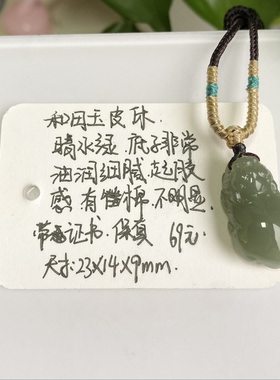 和田玉皮休.
晴水绿.底子非常
油润细腻,起胶
感 有棉.不明显.
带证书.保真 69元.
尺寸:23×14×9mm.